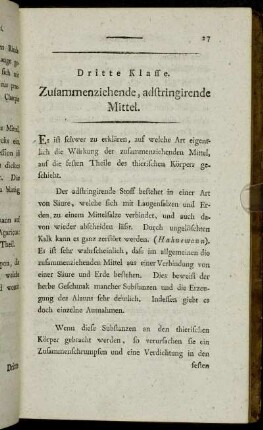 27
Dritte Klaſſe.
Zuſammenziehende, adſtringirende
Mittel.
Es iſt ſchwer zu erklären, auf welche Art eigent-
lich die Würkung der zuſammenziehenden Mittel,
auf die feſten Theile des thieriſchen Körpers ge-
ſchieht.
Der adſtringirende Stoff beſtehet in einer Art
von Säure, welche ſich mit Laugenſalzen und Er-
den zu einem Mittelſalze verbindet, und auch da-
von wieder abſcheiden läſst. Durch ungelöſchten
Kalk kann er ganz zerſtöret werden. (Hahnemann).
Es iſt ſehr wahrſcheinlich, daſs im allgemeinen die
zuſammenziehenden Mittel aus einer Verbindung von
einer Säure und Erde beſtehen. Dies beweiſt der
herbe Geſchmak mancher Subſtanzen und die Erzeu-
gung des Alauns ſehr deutlich. Indeſſen giebt es
doch einzelne Ausnahmen.
Wenn dieſe Subſtanzen an den thieriſchen
Körper gebracht werden, ſo verurſachen ſie ein
Zuſammenſchrumpfen und eine Verdichtung in den
feſten